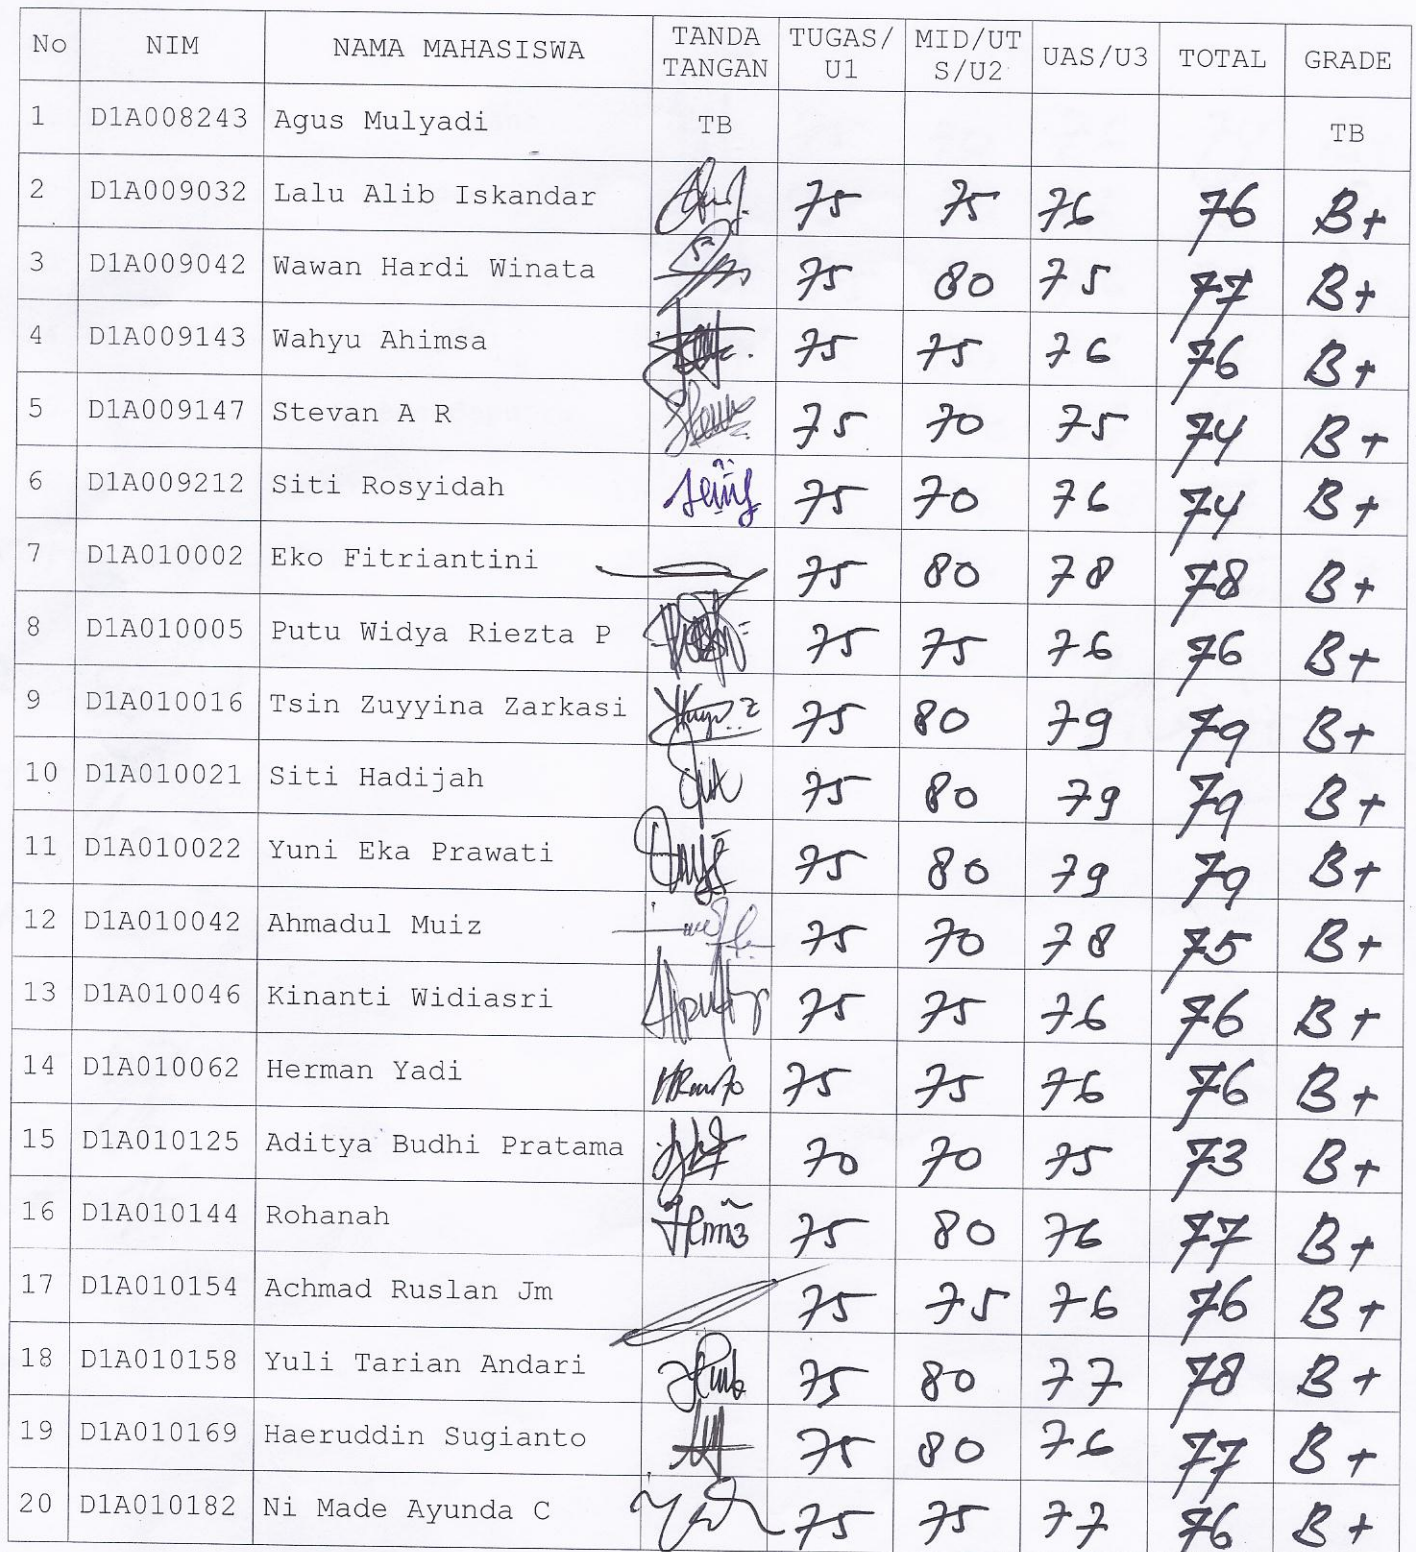 No NIM NAMA MAHASISWA TANDA TANGAN TUGAS/U1 MID/UTS/U2 UAS/U3 TOTAL GRADE
1 D1A008243 Agus Mulyadi TB TB
2 D1A009032 Lalu Alib Iskandar 75 75 76 76 B+
3 D1A009042 Wawan Hardi Winata 75 80 75 77 B+
4 D1A009143 Wahyu Ahimsa 75 75 76 76 B+
5 D1A009147 Stevan A R 75 70 75 74 B+
6 D1A009212 Siti Rosyidah 75 70 76 74 B+
7 D1A010002 Eko Fitriantini 75 80 78 78 B+
8 D1A010005 Putu Widya Riezta P 75 75 76 76 B+
9 D1A010016 Tsin Zuyyina Zarkasi 75 80 79 79 B+
10 D1A010021 Siti Hadijah 75 80 79 79 B+
11 D1A010022 Yuni Eka Prawati 75 80 79 79 B+
12 D1A010042 Ahmadul Muiz 75 70 78 75 B+
13 D1A010046 Kinanti Widiasri 75 75 76 76 B+
14 D1A010062 Herman Yadi 75 75 76 76 B+
15 D1A010125 Aditya Budhi Pratama 70 70 75 73 B+
16 D1A010144 Rohanah 75 80 76 77 B+
17 D1A010154 Achmad Ruslan Jm 75 75 76 76 B+
18 D1A010158 Yuli Tarian Andari 75 80 77 78 B+
19 D1A010169 Haeruddin Sugianto 75 80 76 77 B+
20 D1A010182 Ni Made Ayunda C 75 75 77 76 B+